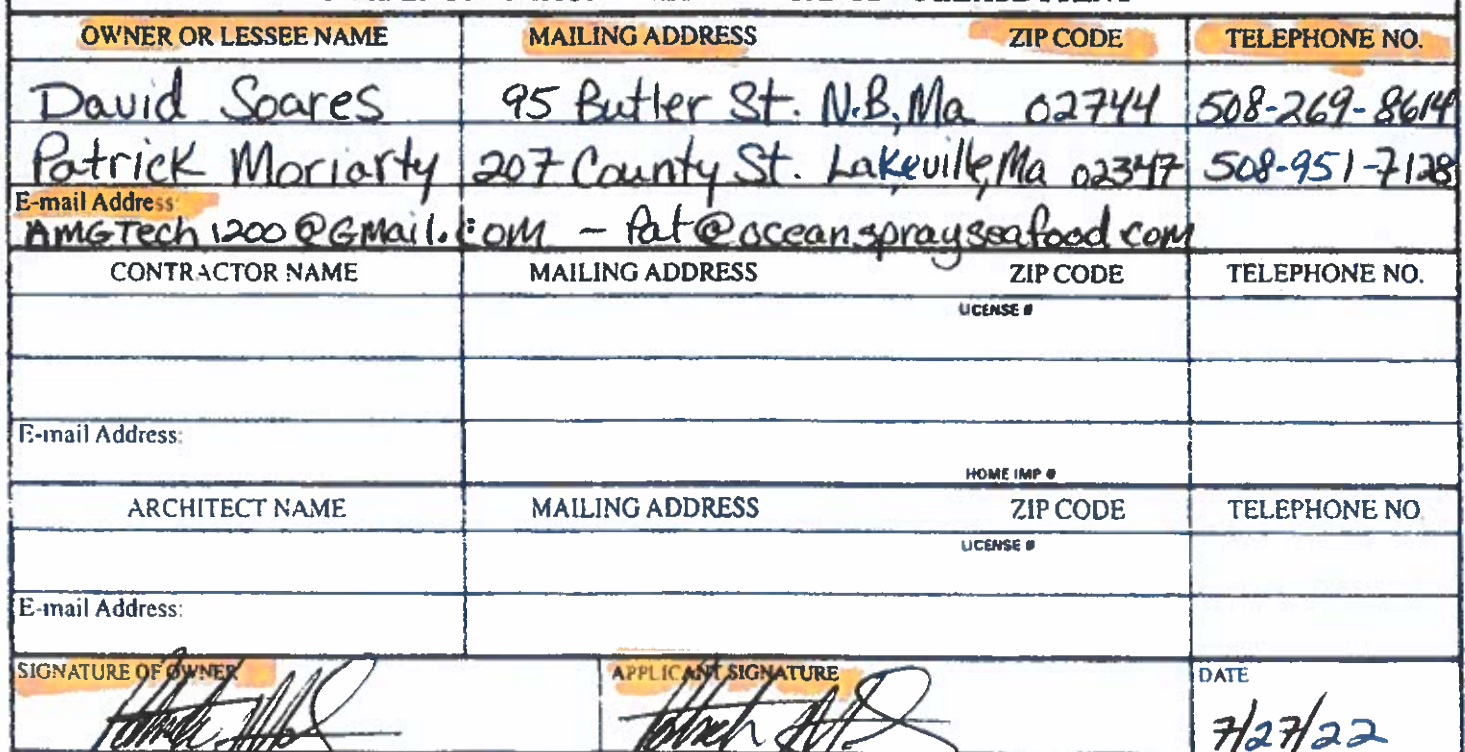 OWNER OR LESSEE NAME MAILING ADDRESS ZIP CODE TELEPHONE NO.
David Soares 95 Butler St. N.B, Ma 02744 508-269-8614
Patrick Moriarty 207 County St. Lakeville, Ma 02347 508-951-7128
E-mail Address:
AMGTech1200@GMail.com - Pat@oceansprayseafood.com
CONTRACTOR NAME MAILING ADDRESS ZIP CODE TELEPHONE NO.
LICENSE #
E-mail Address:
HOME IMP #
ARCHITECT NAME MAILING ADDRESS ZIP CODE TELEPHONE NO
LICENSE #
E-mail Address:
SIGNATURE OF OWNER APPLICANT SIGNATURE DATE
7/27/22